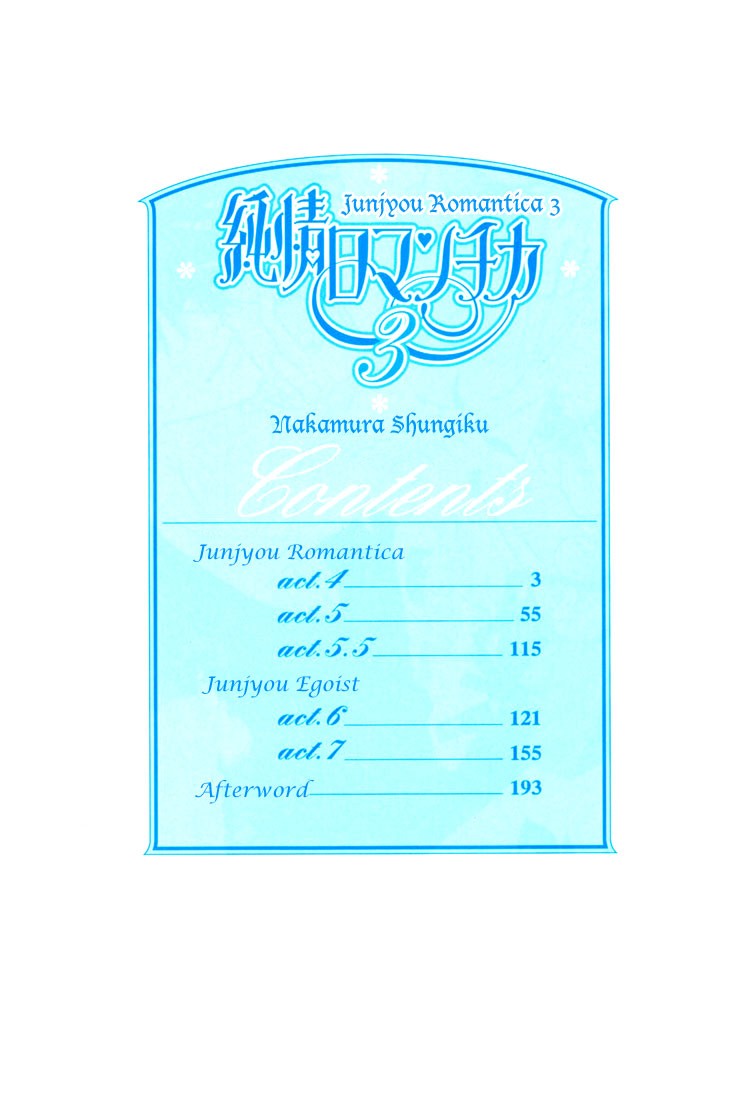 Junjyou Romantica 3
純情ロマンチカ
3
Nakamura Shungiku
Contents
Junjyou Romantica
act.4 3
act.5 55
act.5.5 115
Junjyou Egoist
act.6 121
act.7 155
Afterword 193